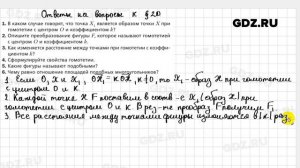 Ответы на вопросы к § 20
- RDZ.RU -
1. В каком случае говорят, что точка X₁ является образом точки X при гомотетии с центром O и коэффициентом k?
2. Опишите преобразование фигуры F, которое называют гомотетией с центром O и коэффициентом k.
3. Как изменяется расстояние между точками при гомотетии с коэффициентом k?
4. Сформулируйте свойства гомотетии.
5. Какие фигуры называют подобными?
6. Чему равно отношение площадей подобных многоугольников?
1. Если O, X и X₁,
то X₁ - образ X при гомотетии
с центром O и k.
2. Каждой точке X F поставим в соотв-е X₁ (образ X) при
гомотетии с центром O и k
F получим F₁.
3. Все расстояния между точками фигуры изменяется в |k| раз.